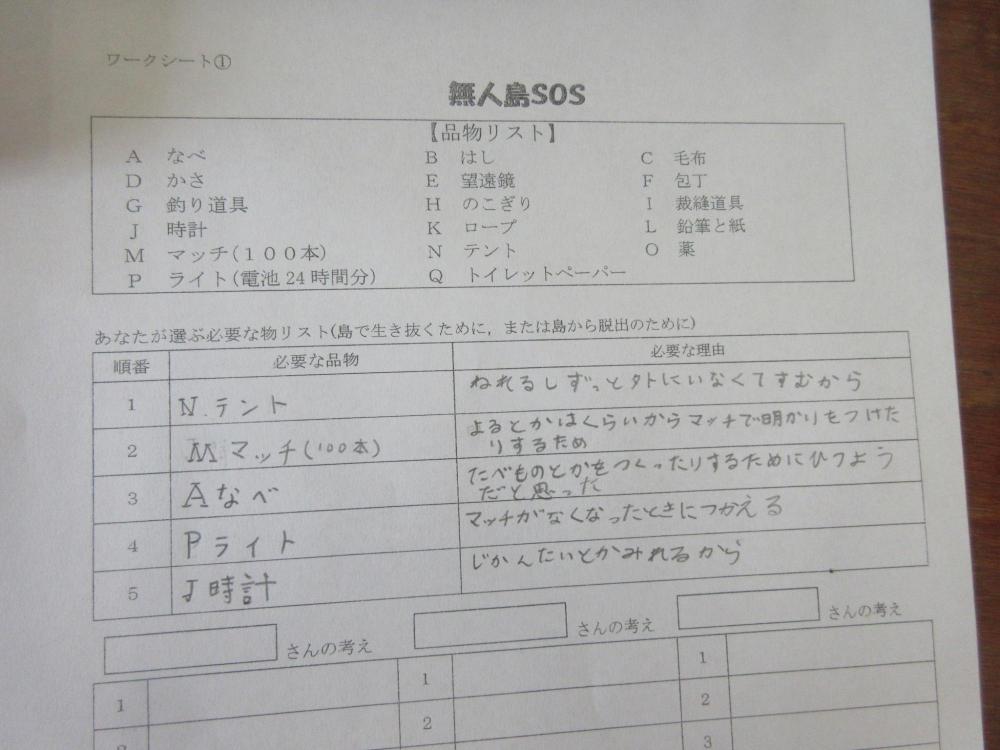 ワークシート①
無人島SOS
【品物リスト】
A なべ B はし C 毛布
D かさ E 望遠鏡 F 包丁
G 釣り道具 H のこぎり I 裁縫道具
J 時計 K ロープ L 鉛筆と紙
M マッチ(１００本) N テント O 薬
P ライト(電池24時間分) Q トイレットペーパー
あなたが選ぶ必要な物リスト(島で生き抜くために，または島から脱出のために)
順番 必要な品物 必要な理由
1 N.テント ねれるしずっと外にいなくてすむから
2 M マッチ(100本) よるとかはくらいからマッチで明かりをつけた
りするため
3 A なべ たべものとかをつくったりするためにひつよう
だと思った
4 P ライト マッチがなくなったときにつかえる
5 J 時計 じかんたいとかみれるから
さんの考え さんの考え さんの考え
1 1 1
2 2
3